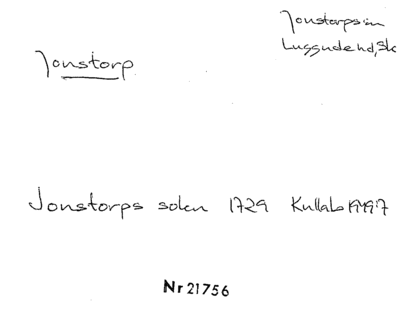 Jonstorps sn
Luggude hd, Sk
Jonstorp
Jonstorps socken 1729 Kullab
Nr 21756